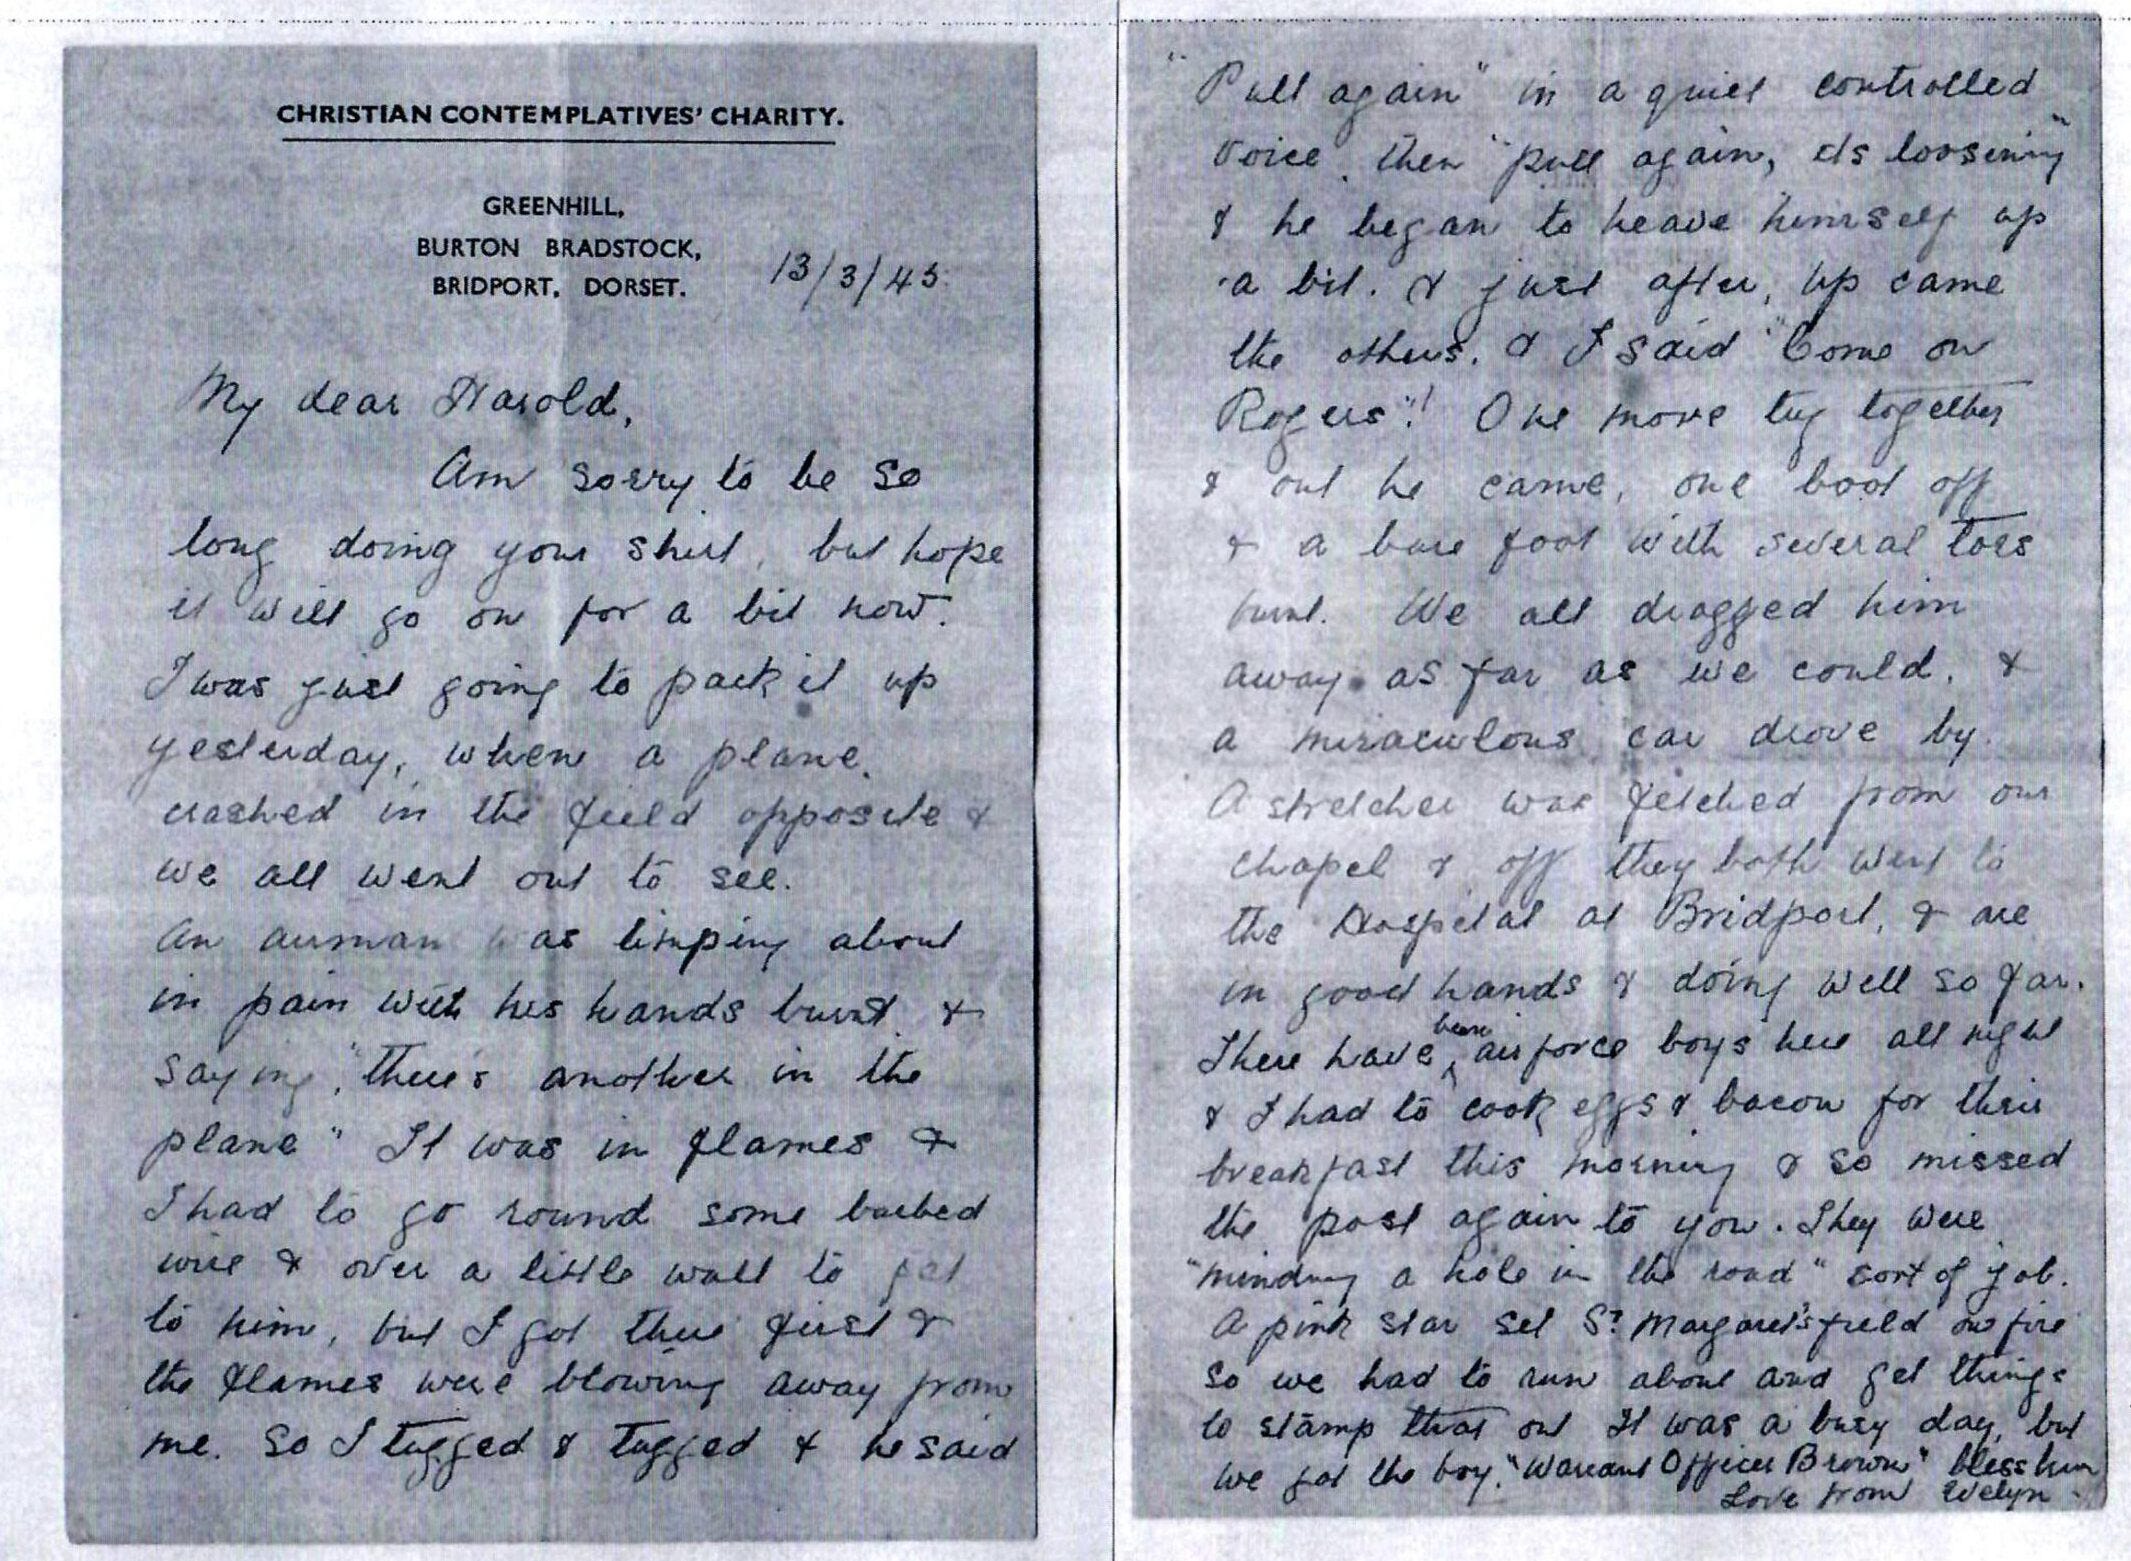 CHRISTIAN CONTEMPLATIVES' CHARITY.
GREENHILL,
BURTON BRADSTOCK,
BRIDPORT, DORSET.
13/3/45
My dear Harold,
Am sorry to be so
long doing your shirt, but hope
it will go on for a bit now.
I was just going to pack it up
yesterday, when a plane
crashed in the field opposite &
we all went out to see.
An airman was limping about
in pain with his hands burnt &
saying, "there's another in the
plane" It was in flames &
I had to go round some barbed
wire & over a little wall to get
to him, but I got there first &
the flames were blowing away from
me. So I tugged & tugged & he said
"Pull again" in a quiet controlled
voice. Then "pull again, its loosening"
& he began to heave himself up
a bit. & just after, up came
the others. & I said "Come on
Rogers"! One more tug together
& out he came, one boot off
& a bare foot with several toes
burnt. We all dragged him
away as far as we could. &
a miraculous car drove by.
A stretcher was fetched from our
chapel & off they both went to
the Hospital at Bridport, & are
in good hands & doing well so far.
There have been airforce boys here all night
& I had to cook eggs & bacon for their
breakfast this morning & so missed
the post again to you. They were
"minding a hole in the road" sort of job.
A pink star set St Margaret's field on fire
so we had to run about and get things
to stamp that out It was a busy day, but
we got the boy. "Warrant Officer Brown" bless him
Love from Evelyn.